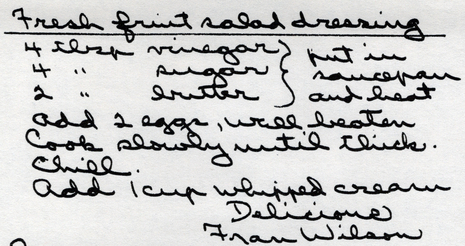 Fresh fruit salad dressing
4 tbsp vinegar } put in
4 " sugar } saucepan
2 " butter } and heat
Add 2 eggs, well beaten
Cook slowly until thick.
Chill.
Add 1 cup whipped cream
Delicious
Fran Wilson